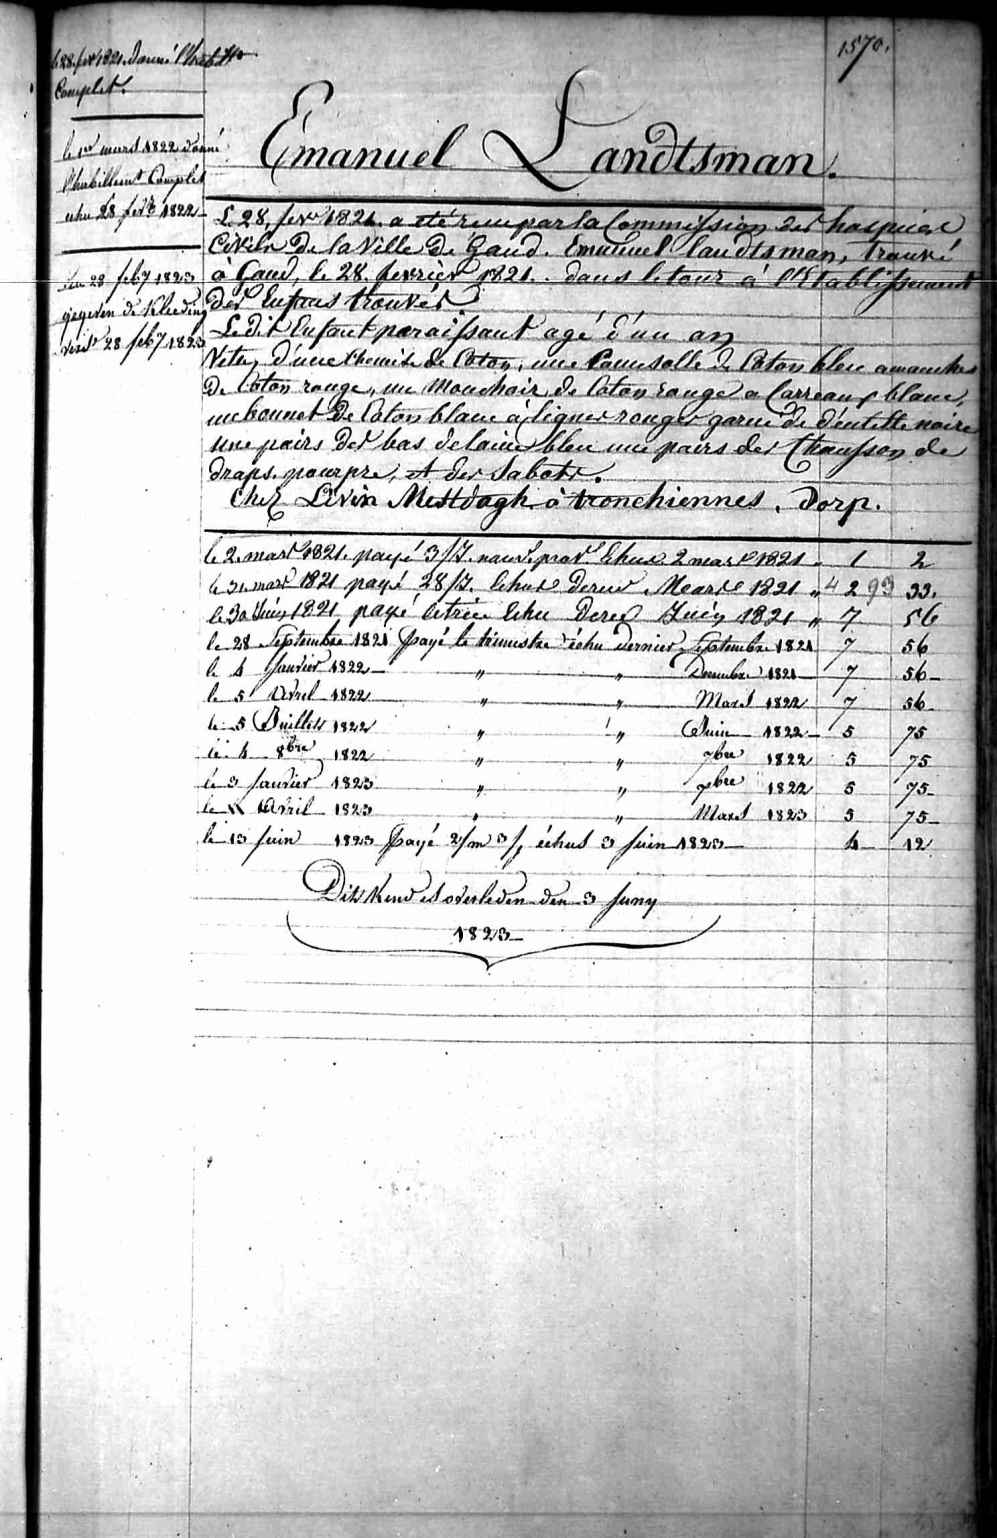 1570.
le 28 fevr 1821. donné l'habillt
Complet.
le 1er mars 1822 donné
l'habillement Complet
echu 28 fevr 1822
den 28 feb 1823
gegeven de Kleeding
28 feb 1823
Émanuel Landtsman.
Le 28, fevr 1821. a eté recu par la Commission des hospices
Civils de la Ville de Gand. Emanuel landtsman, trouvé
à Gand, le 28. fevrier 1821. dans le tour à l'Etablissement
des Enfans trouvés.
Le dit Enfant paraissant agé d'un an
Vetu, d'une Chemise de Coton, une Camisolle de Coton bleu a manches
de Coton rouge, un Mouchoir de Coton rouge a Carreaux blanc,
un bonnet de Coton blanc à lignes rouges garni de d'entelle noire
une pairs des bas de laine bleu une pairs des Chausson de
draps pourpre, et des Sabots.
Chez Livin Mestdagh à tronchiennes. Dorp.
le 2. mars 1821. payé 3/J. echus 2 mars 1821 „ 1 2
le 31. mars 1821 payé 28/J. Echus Mars 1821 „ 4 2 93 33.
le 30 Juin 1821 payé le trice Echu Juin 1821 „ 7 56
le 28 Septembre 1821 payé le trimestre échu dernier Septembre 1821 7 56
le 4 Janvier 1822 „ „ Decembre 1821 7 56
le 5 Avril 1822 „ „ Mars 1822 7 56
le 5 Juillet 1822 „ „ Juin 1822 5 75
le 4 8bre 1822 „ „ 7bre 1822 5 75
le 3 Janvier 1823 „ „ 1822 5 75
le Avril 1823 „ „ Mars 1823 5 75
le 13 Juin 1823 payé 2/m 3/j échus 3 Juin 1823 4 12
Dit Kind is overleden den 3 Juny
1823